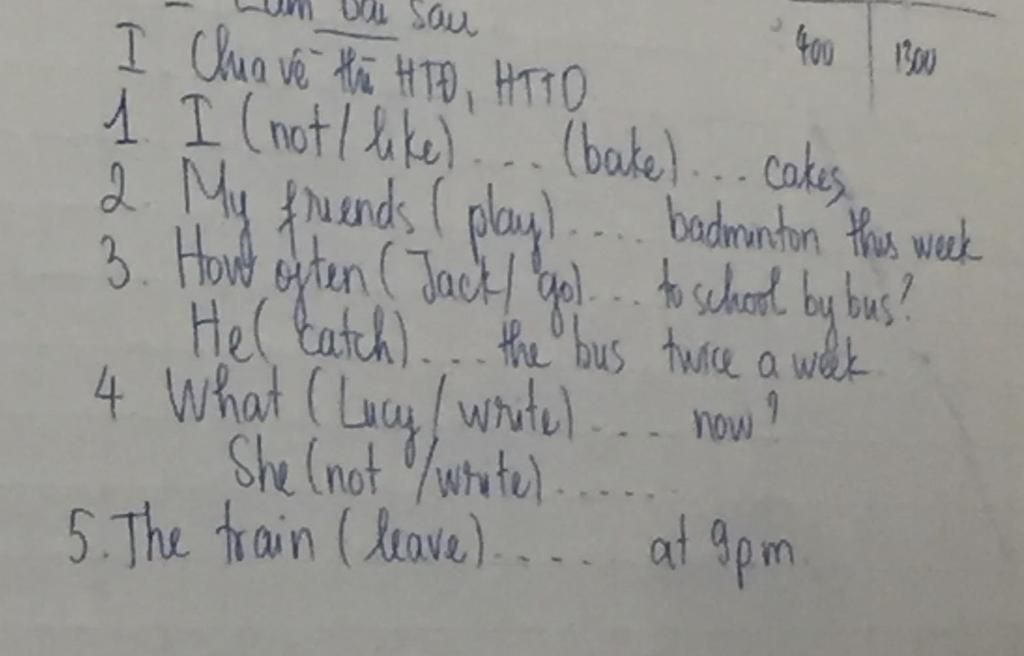 - Làm bài sau
400 1300
I Chia về thì HTĐ, HTTD
1. I (not/like).... (bake)... cakes
2. My friends (play).... badminton this week
3. How often (Jack/go).... to school by bus?
He (catch).... the bus twice a week
4 What (Lucy/write).... now?
She (not/write)......
5. The train (leave).... at 9pm.